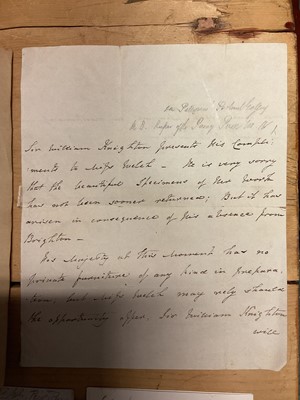 Sir William Knighton presents His Compli-
ments to Miss Welch - He is very sorry
that the beautiful Specimens of Her Work
has not been sooner returned; But it has
arisen in consequence of His absence from
Brighton -
His Majesty at this Moment has no
private furniture of any kind in prepara-
tion, but Miss Welch may rely should
the opportunity offer, Sir William Knighton
will